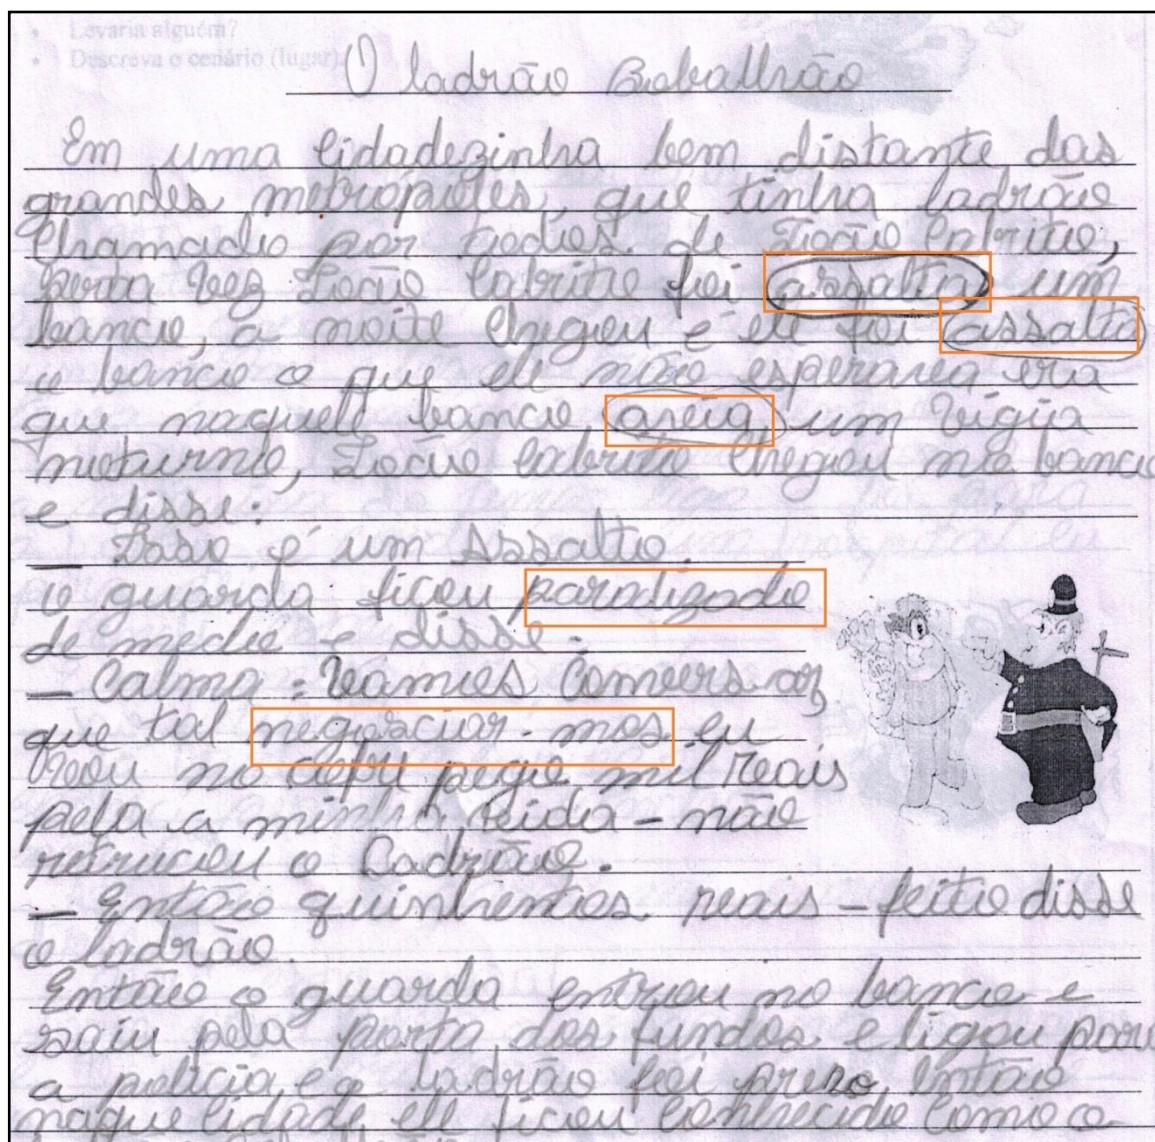 • Levaria alguém?
• Descreva o cenário (lugar).
O ladrão Bobalhão
Em uma cidadezinha bem distante das
grandes metrópoles, que tinha ladrão
chamado por todos de João Cabrito,
certa vez João Cabrito foi assalta um
banco, a noite chegou e ele foi assalto
o banco o que ele não esperava era
que naquele banco avia um vigia
noturno, João Cabrito chegou no banco
e disse:
— Isso é um Assalto.
o guarda ficou paralizado
de medo e disse:
— Calma: Vamos Conversar,
que tal negorciar-mos eu
vou no cofre pego mil reais
pela a minha vida - não
retrucou o Ladrão.
— Então quinhentos reais - feito disse
o ladrão.
Então o guarda entrou no banco e
saiu pela porta dos fundos e ligou para
a polícia, e o ladrão foi preso, então
naquele cidade ele ficou conhecido como o